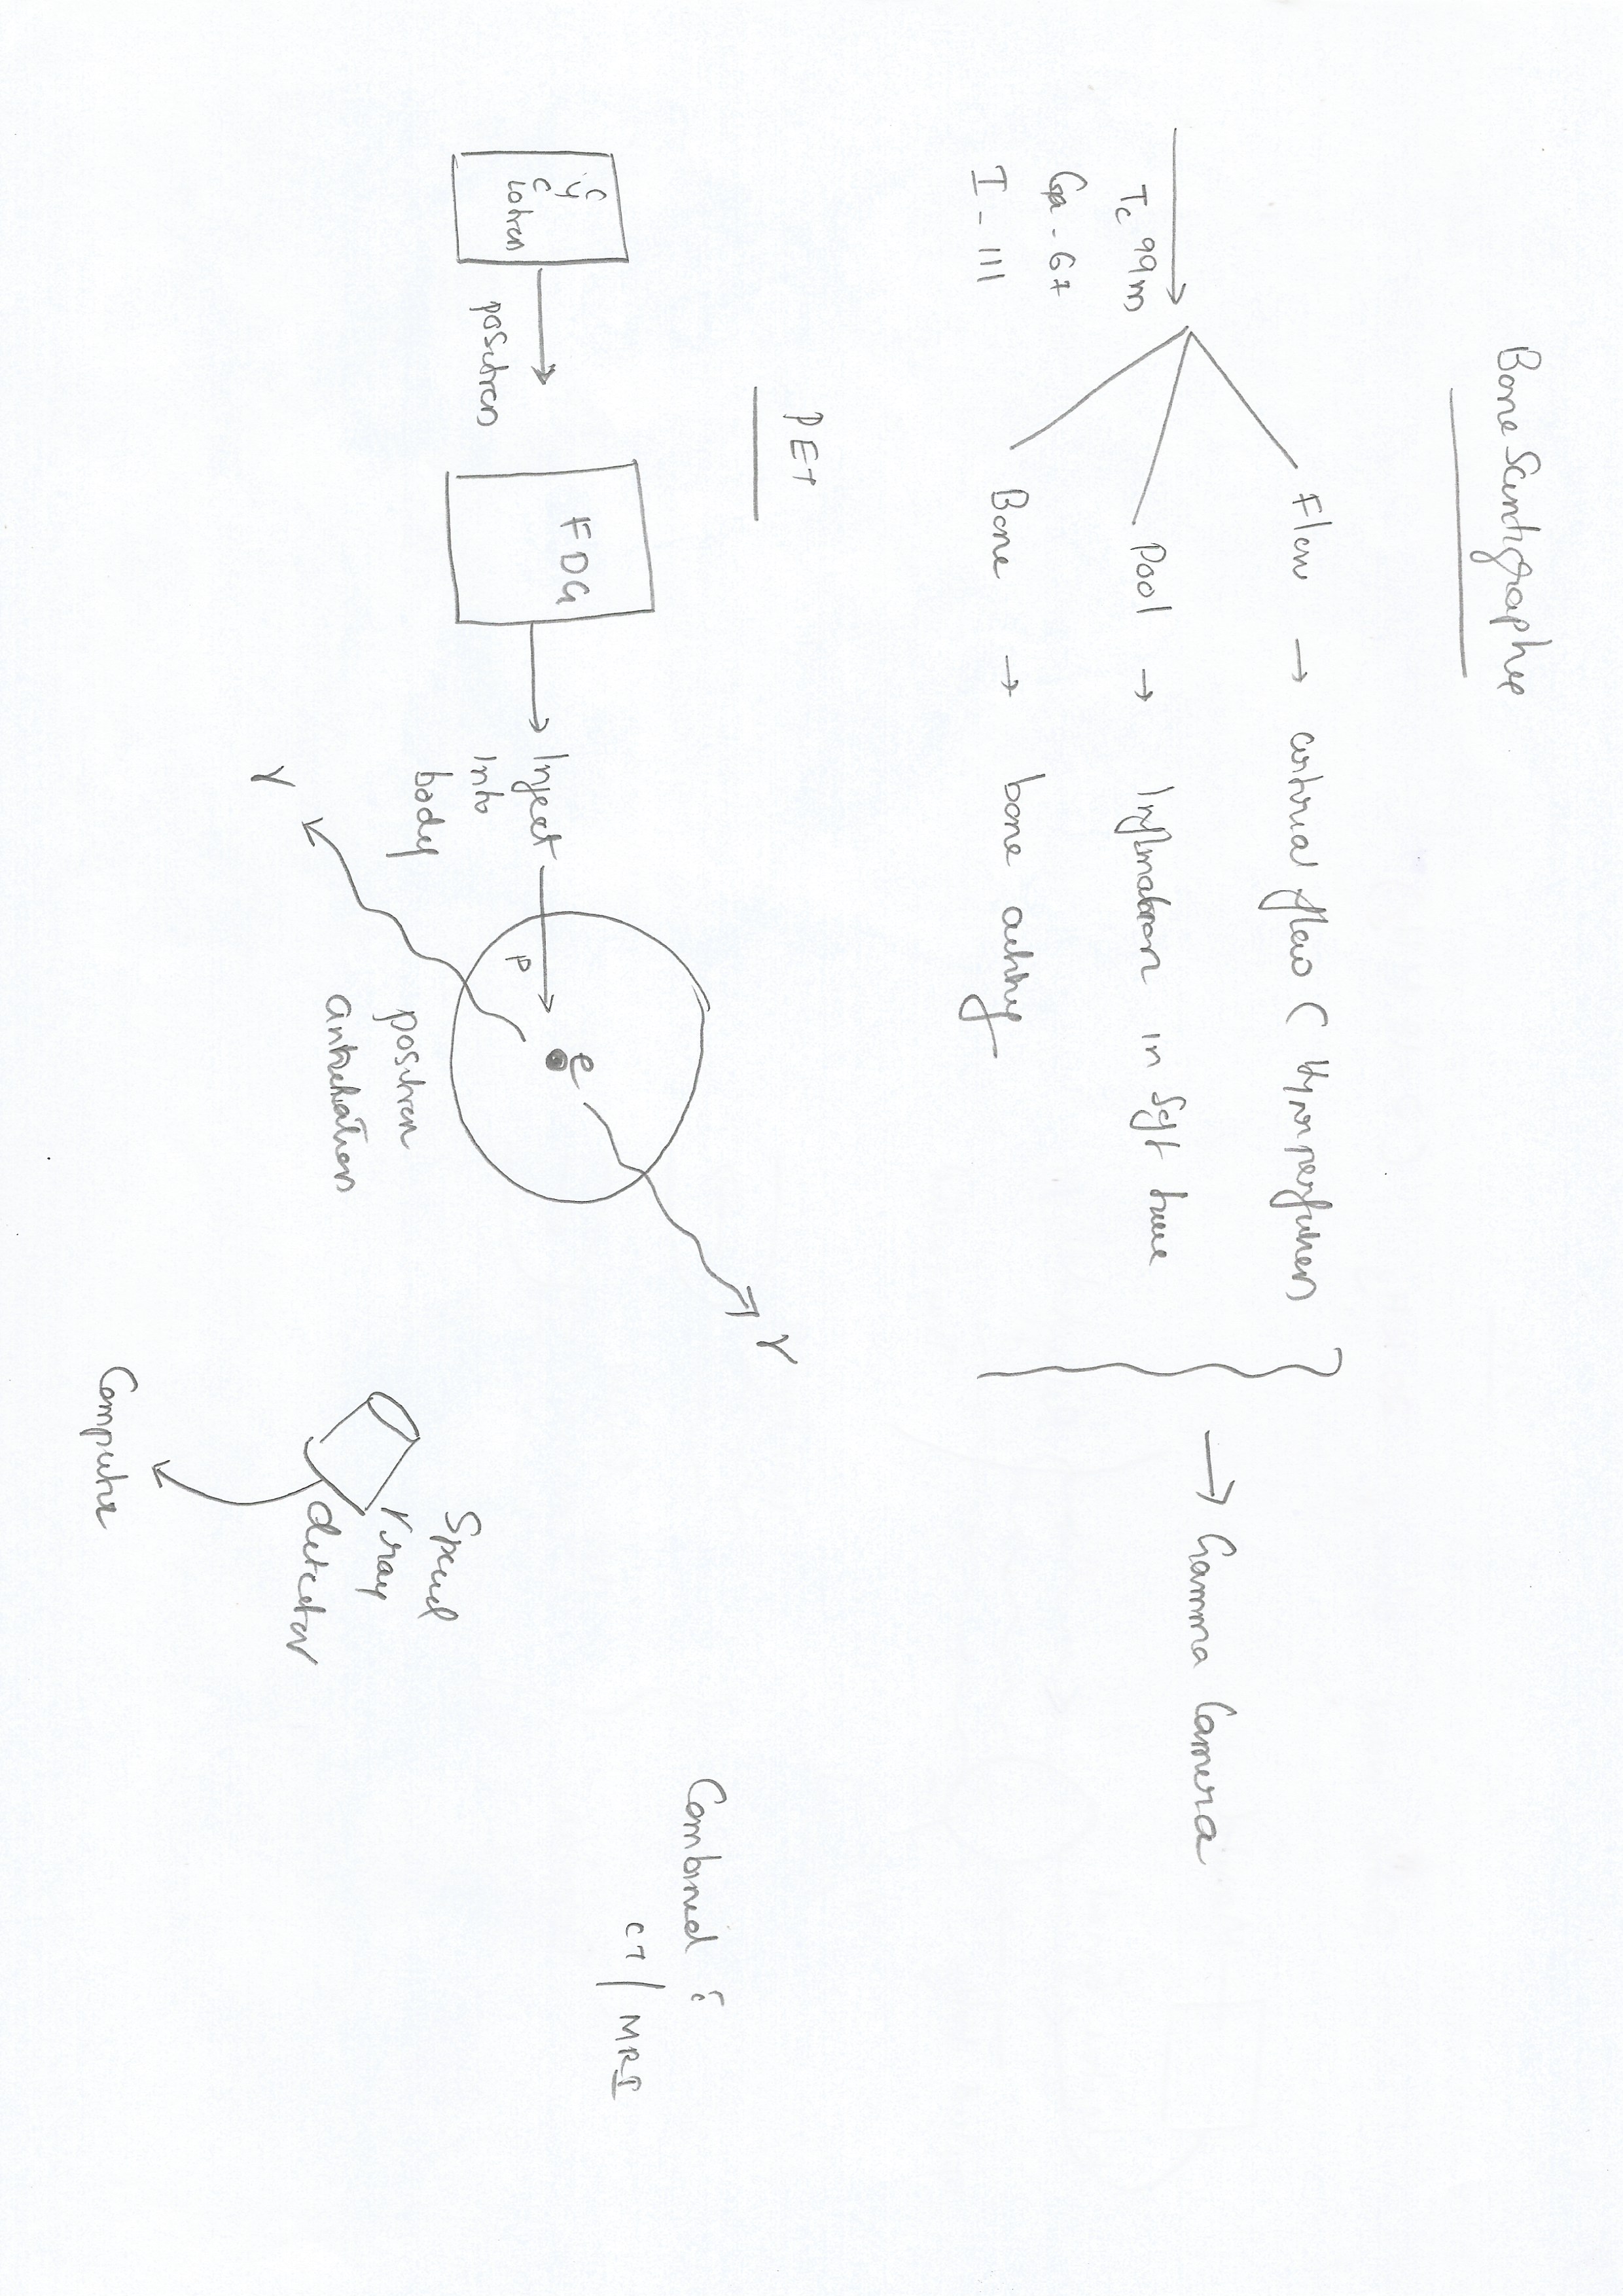 Bone Scintigraphy
Flow → arterial flow ( Hyperperfusion
Tc 99m
Pool → Inflmation in Soft tissue
→ Gamma Camera
Ga - 67
I - 111
Bone → bone activity
PET
Cy
clotron
positron
FDG
Inject
Into
body
P
e
γ
γ
positron
Special
γ ray
detector
Computer
Combined c̄
CT / MRI